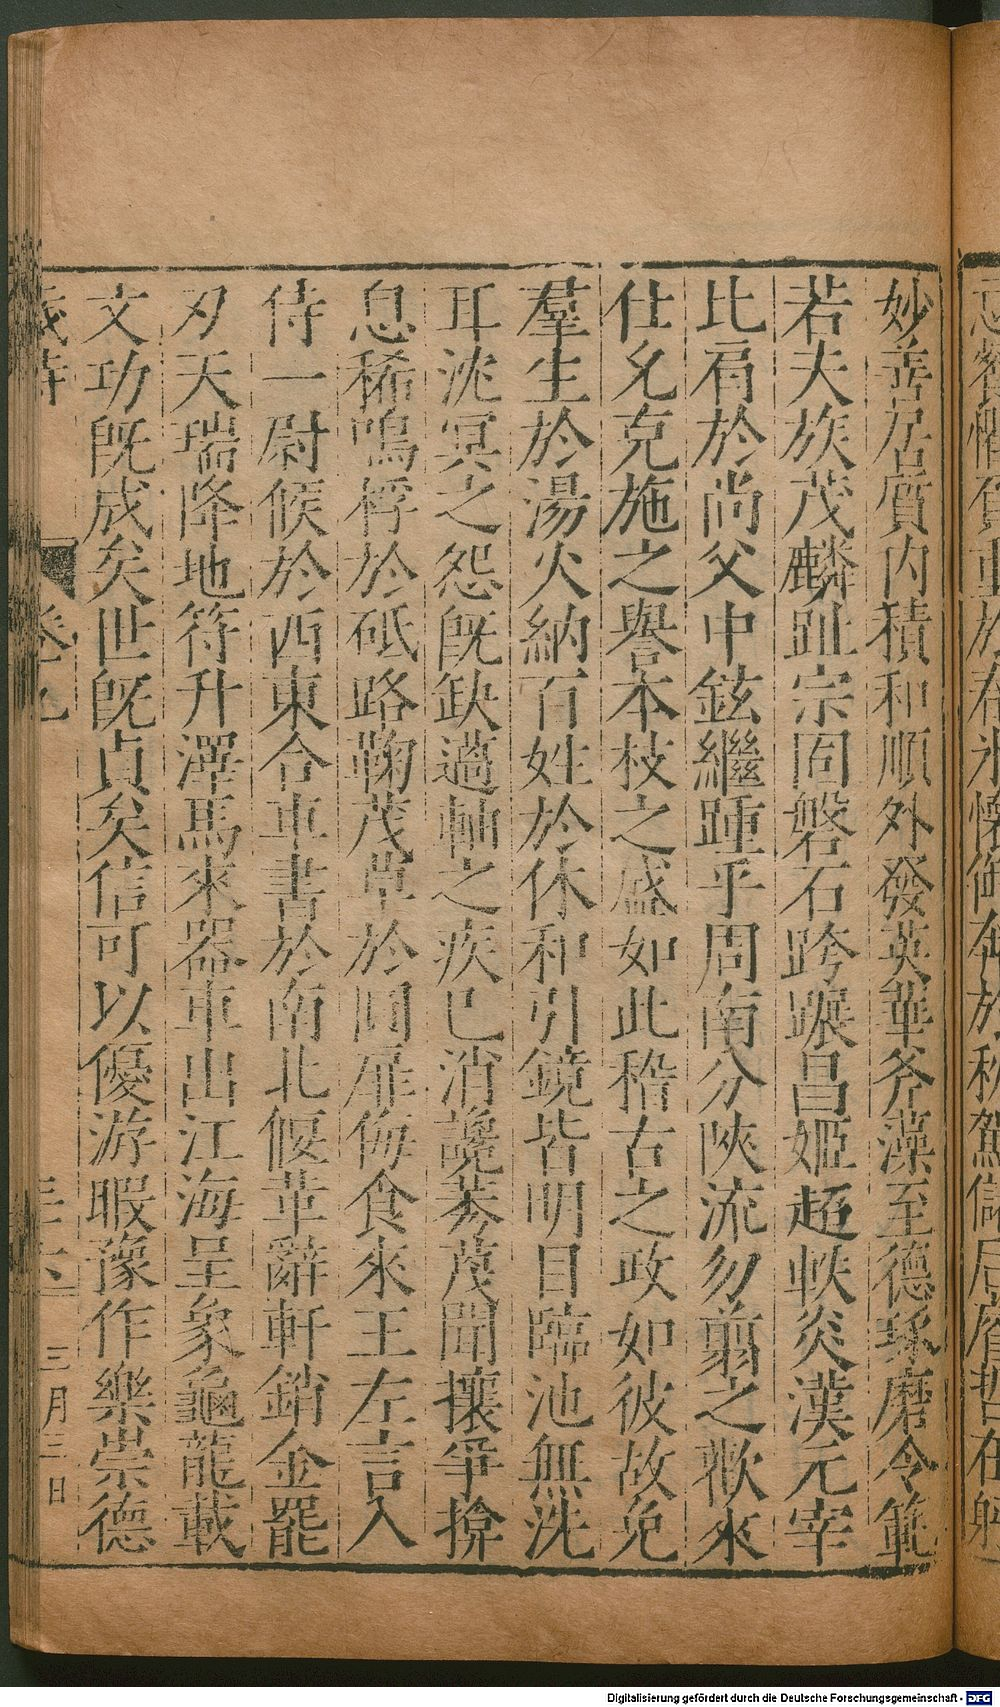 妙善居質内積和順外發英華斧藻至德琢磨令範
若夫族茂麟趾宗固磐石跨躡昌姬超軼炎漢元宰
比肩於尚父中鉉繼踵乎周南分陝流勿翦之歌來
仕允克施之譽本枝之盛如此稽古之政如彼故免
羣生於湯火納百姓於休和引鏡皆明目臨池無洗
耳沈冥之怨既缺薖軸之疾已消讒莠蔑聞攘爭揜
息稀鳴桴於砥路鞠茂草於圓扉侮食來王左言入
侍一尉候於西東合車書於南北偃革辭軒銷金罷
刃天瑞降地符升澤馬來器車出江海呈象龜龍載
文功既成矣世既貞矣信可以優游暇豫作樂崇德
歲時
卷九
三月三日
Digitalisierung gefördert durch die Deutsche Forschungsgemeinschaft - DFG